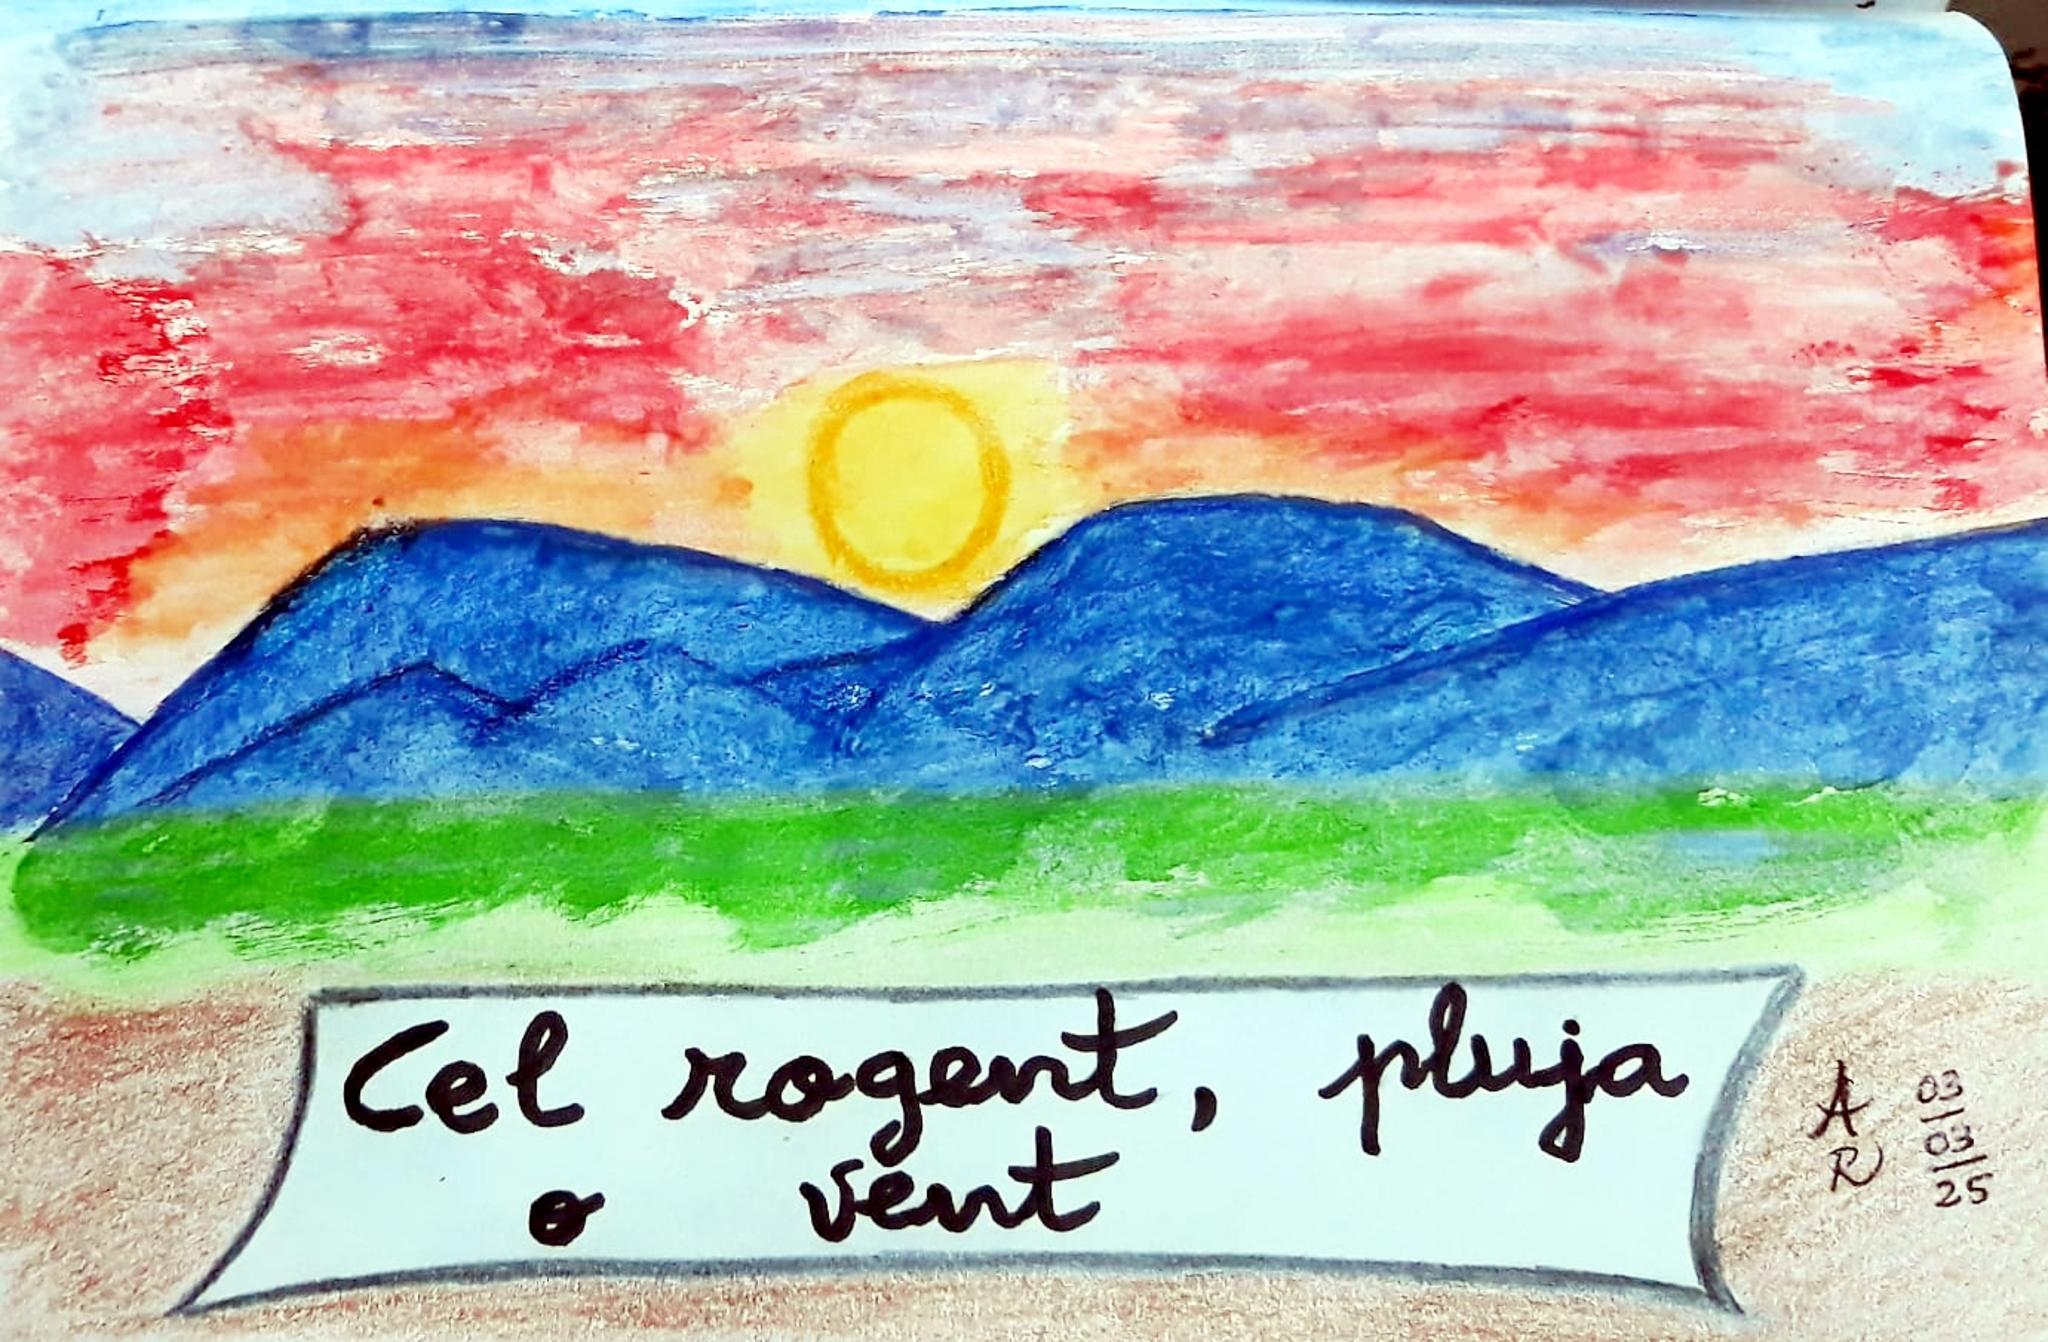 Cel rogent, pluja
o vent
A
R
03
03
25